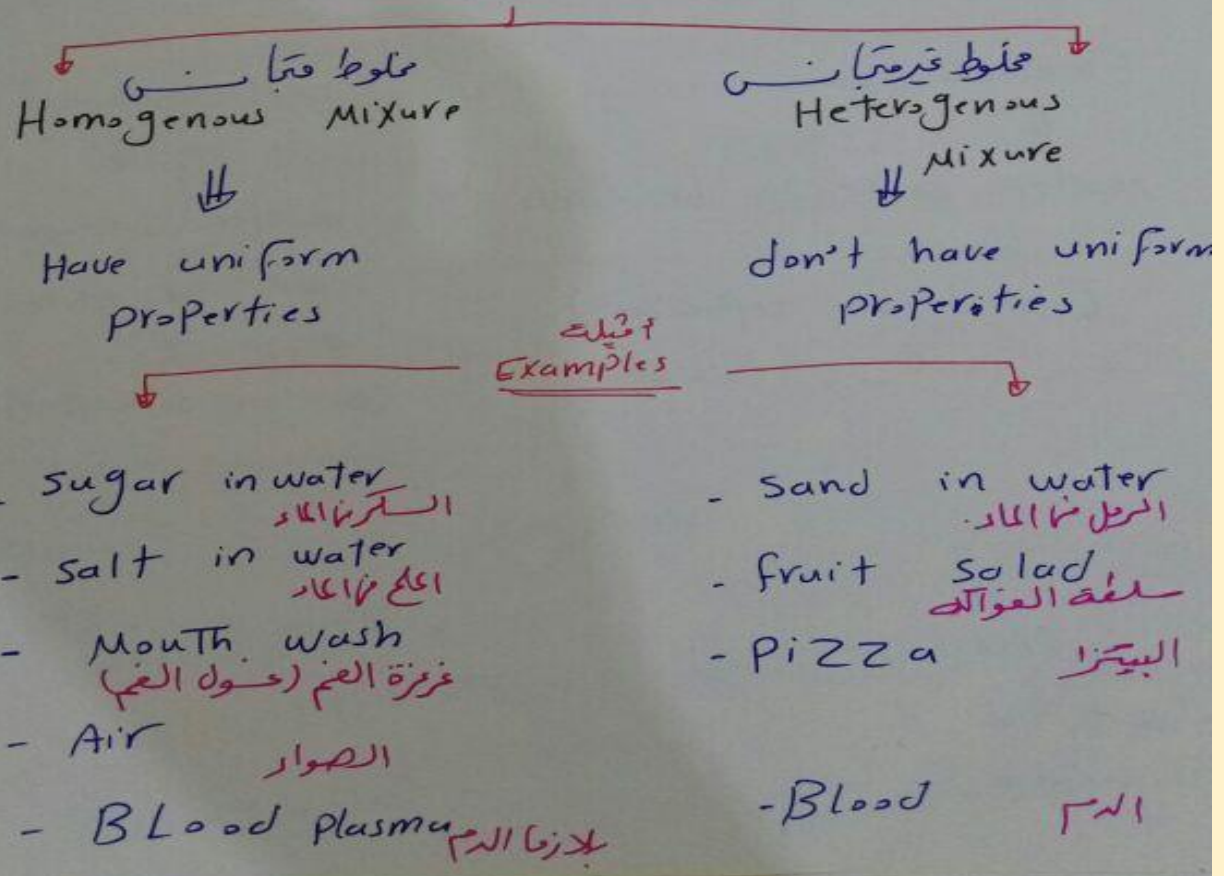 مخلوط متجانس
Homogenous Mixure
Have uniform
properties
مخلوط غير متجانس
Heterogenous
Mixure
don't have uniform
properities
أمثلة
Examples
- sugar in water
السكر في الماء
- salt in water
الملح في الماء
- Mouth wash
غرغرة الفم (غسول الفم)
- Air
الهواء
- BLood plasma بلازما الدم
- sand in water
الرمل في الماء.
- fruit salad
سلطة الفواكه
- PiZZa البيتزا
- Blood الدم